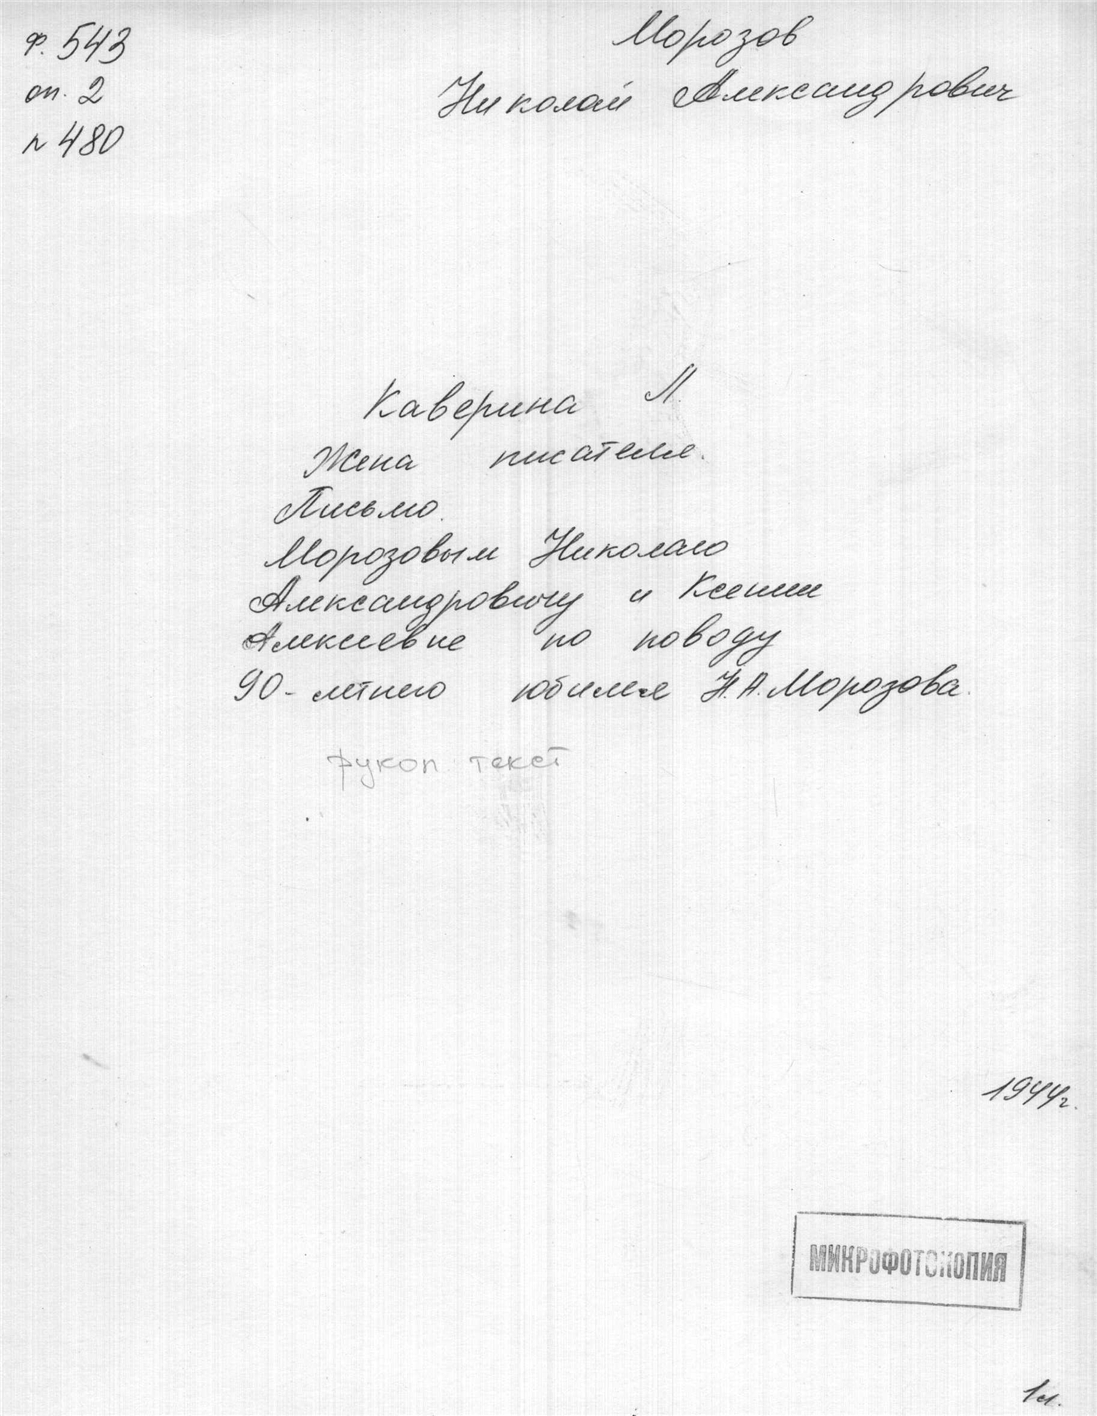 ф. 543
оп. 2
№ 480
Морозов
Николай Александрович
Каверина Л.
Жена писателя.
Письмо.
Морозовым Николаю
Александровичу и Ксении
Алексеевне по поводу
90-летнего юбилея Н.А. Морозова.
рукоп. текст
1944 г.
МИКРОФОТОКОПИЯ
1 л.